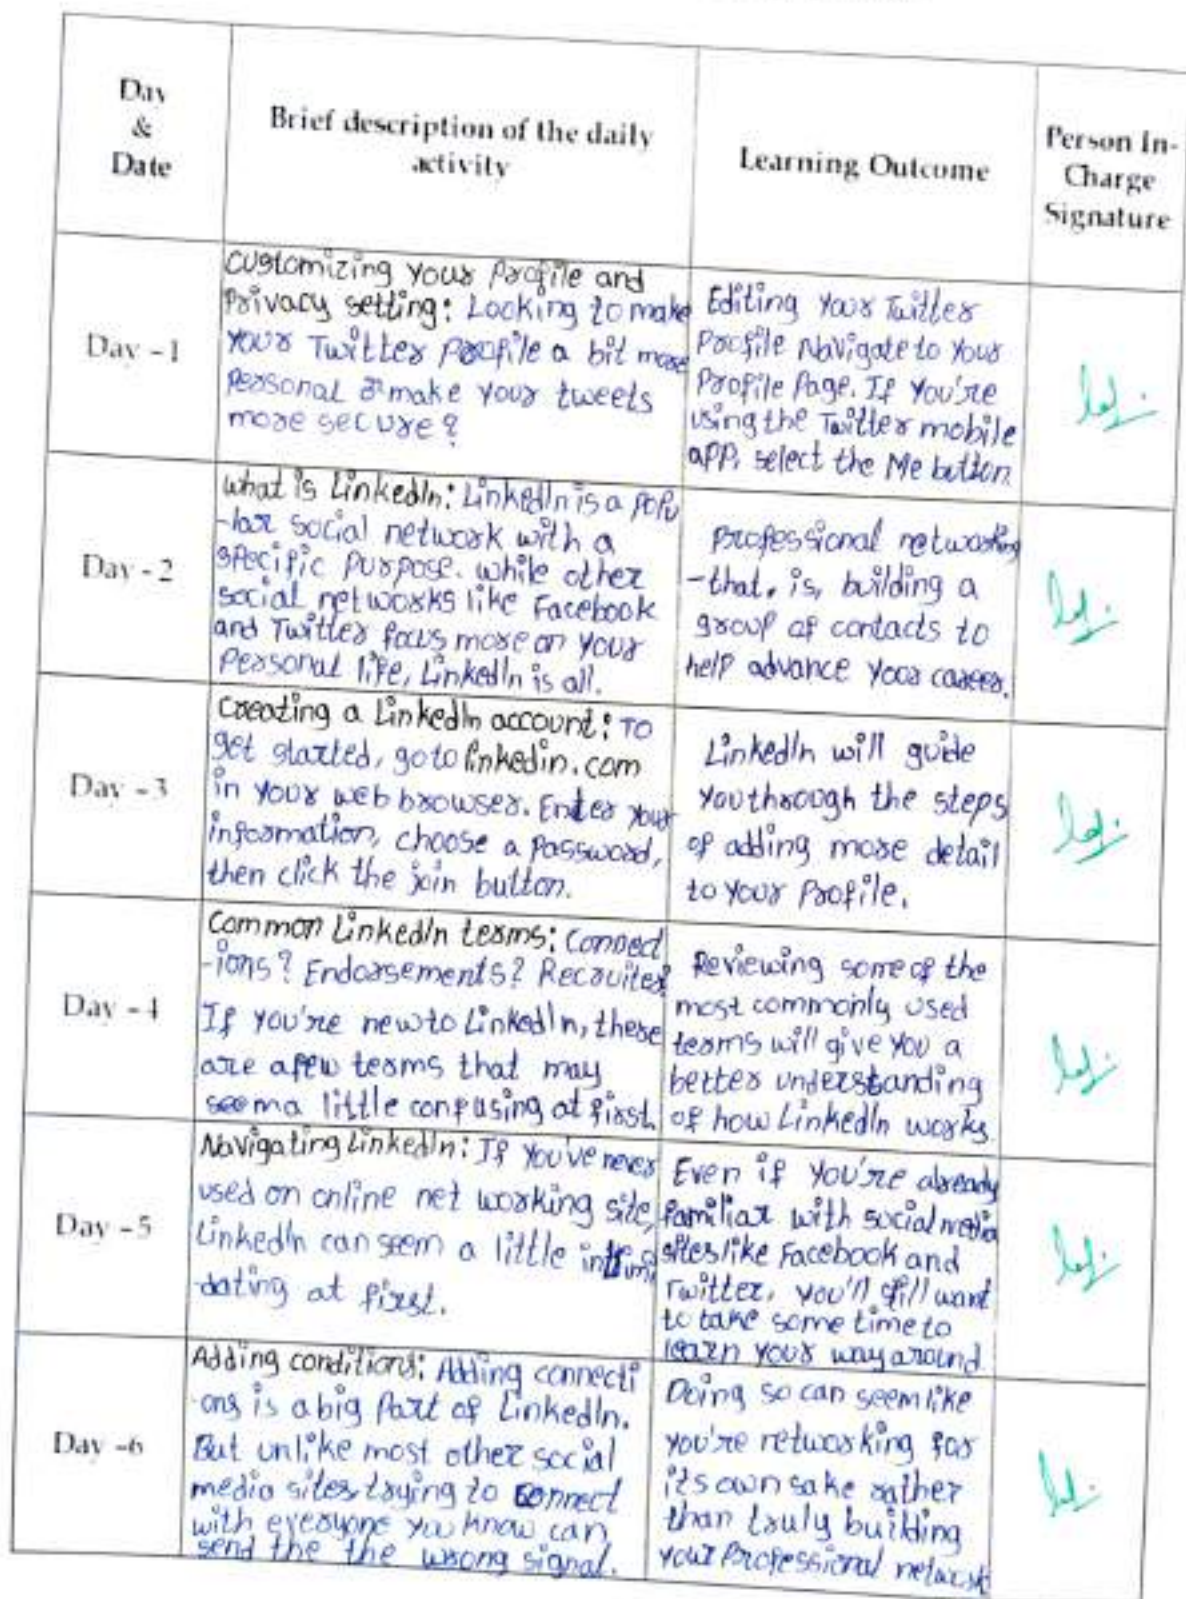 Day
&
Date
Brief description of the daily
activity
Learning Outcome
Person In-
Charge
Signature
Day - 1
Customizing your Profile and
Privacy setting: Looking to make
your Twitter Profile a bit more
Personal or make your tweets
more secure?
Editing Your Twitter
Profile Navigate to your
Profile Page. If you're
using the Twitter mobile
app, select the Me button.
Day - 2
what is LinkedIn: LinkedIn is a popu
-lar social network with a
specific purpose. while other
social networks like Facebook
and Twitter focus more on your
Personal life, LinkedIn is all.
professional networking
-that, is, building a
group of contacts to
help advance your career.
Day - 3
Creating a LinkedIn account: To
get started, go to linkedin.com
in your web browser. Enter your
information, choose a password,
then click the join button.
LinkedIn will guide
you through the steps
of adding more detail
to your Profile.
Day - 4
Common LinkedIn terms: Connect
-ions? Endorsements? Recruiter?
If you're new to LinkedIn, these
are a few terms that may
seem a little confusing at first.
Reviewing some of the
most commonly used
terms will give you a
better understanding
of how LinkedIn works.
Day - 5
Navigating LinkedIn: If you've never
used on online net working site,
LinkedIn can seem a little intimi
-dating at first.
Even if you're already
familiar with social media
sites like Facebook and
Twitter, you'll still want
to take some time to
learn your way around.
Day -6
Adding conditions: Adding connecti
-ons is a big Part of LinkedIn.
But unlike most other social
media sites, trying to connect
with everyone you know can
send the the wrong signal.
Doing so can seem like
you're networking for
its own sake rather
than truly building
your Professional network